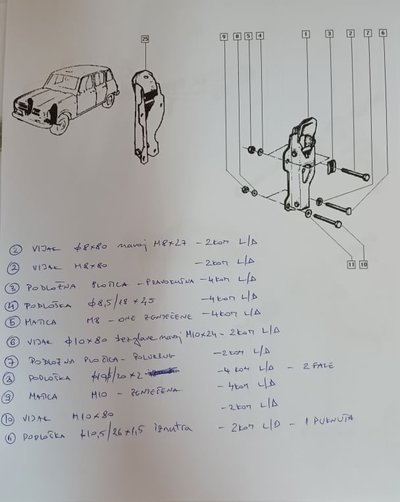 25
9 8 5 4 1 3 2 7 6
11 10
2 VIJAK ϕ8x80 navoj M8x27 - 2kom L/D
2 VIJAK M8x80 - 2kom L/D
3 PODLOŽNA PLOČICA - PRAVOKUTNA - 4kom L/D
4 PODLOŠKA ϕ8,5/18 x - 4kom L/D
5 MATICA M8 - ONE ZGNJEČENE - 4kom L/D
6 VIJAK ϕ10x80 navoj M10x24 - 2kom L/D
7 PODLOŽNA PLOČICA - POLUKRUG - 2kom L/D
8 PODLOŠKA /20 x 2 - 4kom L/D - 2 FALE
9 MATICA M10 - ZGNJEČENA - 4kom L/D
10 VIJAK M10x80 - 2kom L/D
PODLOŠKA ϕ10,5/26x1,5 iznutra - 2kom L/D - 1 PUKNUTA